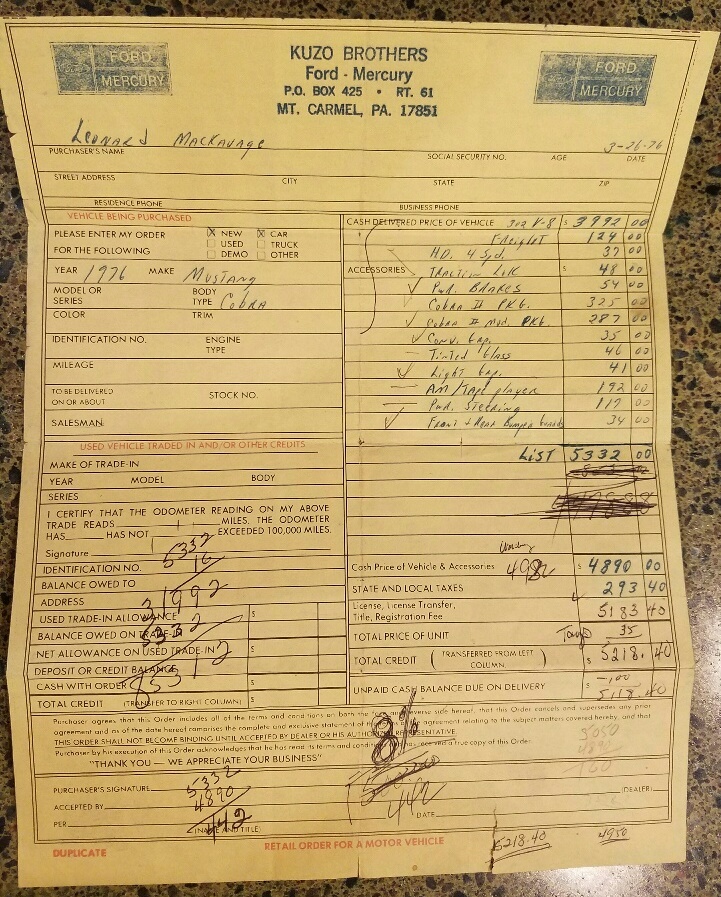 FORD
MERCURY
KUZO BROTHERS
Ford - Mercury
P.O. BOX 425 • RT. 61
MT. CARMEL, PA. 17851
FORD
MERCURY
Leonard Mackavage 3-26-76
PURCHASER'S NAME SOCIAL SECURITY NO. AGE DATE
STREET ADDRESS CITY STATE ZIP
RESIDENCE PHONE BUSINESS PHONE
VEHICLE BEING PURCHASED
PLEASE ENTER MY ORDER X NEW X CAR
FOR THE FOLLOWING USED TRUCK
DEMO OTHER
YEAR 1976 MAKE Mustang
MODEL OR SERIES BODY TYPE Cobra
COLOR TRIM
IDENTIFICATION NO. ENGINE TYPE
MILEAGE
TO BE DELIVERED ON OR ABOUT STOCK NO.
SALESMAN:
USED VEHICLE TRADED IN AND/OR OTHER CREDITS
MAKE OF TRADE-IN
YEAR MODEL BODY
SERIES
I CERTIFY THAT THE ODOMETER READING ON MY ABOVE
TRADE READS MILES. THE ODOMETER
HAS HAS NOT EXCEEDED 100,000 MILES.
Signature
5332
IDENTIFICATION NO. 16
BALANCE OWED TO
31992
ADDRESS
5332
USED TRADE-IN ALLOWANCE $
BALANCE OWED ON TRADE-IN $
NET ALLOWANCE ON USED TRADE-IN $
85312
DEPOSIT OR CREDIT BALANCE $
CASH WITH ORDER $
TOTAL CREDIT (TRANSFER TO RIGHT COLUMN) $
CASH DELIVERED PRICE OF VEHICLE 302 V-8 $ 3992 00
Freight 124 00
HD. 4 Spd. 37 00
ACCESSORIES Traction Lok $ 48 00
Pwr. Brakes 54 00
Cobra II Pkg. 325 00
Cobra II Mod. Pkg. 287 00
Conv. Gap. 35 00
Tinted Glass 46 00
Light Gap. 41 00
AM/Tape player 192 00
Pwr. Steering 117 00
Front & Rear Bumper Guards 34 00
LIST 5332 00
Cash Price of Vehicle & Accessories 4982 $ 4890 00
STATE AND LOCAL TAXES 293 40
License, License Transfer, Title, Registration Fee 5183 40
TOTAL PRICE OF UNIT Tags 35
TOTAL CREDIT (TRANSFERRED FROM LEFT COLUMN) $ 5218.40
-100
UNPAID CASH BALANCE DUE ON DELIVERY $ 5118.40
Purchaser agrees that this Order includes all of the terms and conditions on both the face and reverse side hereof, that this Order cancels and supersedes any prior
agreement and as of the date hereof comprises the complete and exclusive statement of the terms of the agreement relating to the subject matters covered hereby, and that
THIS ORDER SHALL NOT BECOME BINDING UNTIL ACCEPTED BY DEALER OR HIS AUTHORIZED REPRESENTATIVE.
Purchaser by his execution of this Order acknowledges that he has read its terms and conditions and has received a true copy of this Order.
"THANK YOU — WE APPRECIATE YOUR BUSINESS"
5050
4890
160
PURCHASER'S SIGNATURE
5332
ACCEPTED BY 4890 (DEALER)
442
PER 442 (NAME AND TITLE) DATE
DUPLICATE RETAIL ORDER FOR A MOTOR VEHICLE
5218.40 4950